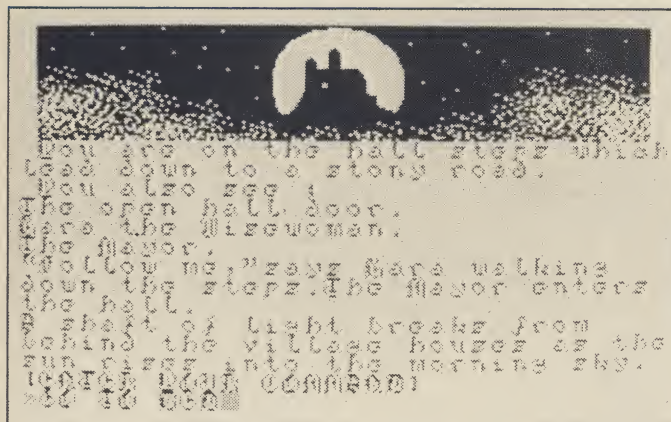 You are on the hall steps which
lead down to a stony road.
You also see :
the open hall door.
Gara the Wisewoman.
the Mayor.
"Follow me," says Gara walking
down the steps.The Mayor enters
the hall.
A shaft of light breaks from
behind the village houses as the
sun rises into the morning sky.
ENTER YOUR COMMAND:
>GO TO